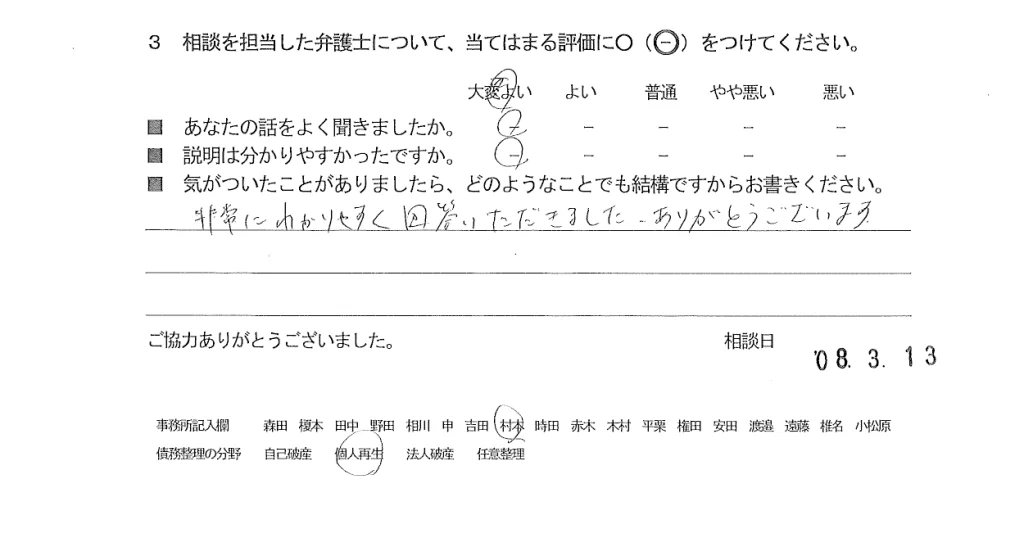 3 相談を担当した弁護士について、当てはまる評価に〇（㊀）をつけてください。
大変よい よい 普通 やや悪い 悪い
■ あなたの話をよく聞きましたか。 － － － － －
■ 説明は分かりやすかったですか。 － － － － －
■ 気がついたことがありましたら、どのようなことでも結構ですからお書きください。
非常にわかりやすく回答いただきました。ありがとうございます
ご協力ありがとうございました。 相談日 '08. 3. 13
事務所記入欄 森田 榎本 田中 野田 相川 申 吉田 村本 時田 赤木 木村 平栗 権田 安田 渡邉 遠藤 椎名 小松原
債務整理の分野 自己破産 個人再生 法人破産 任意整理